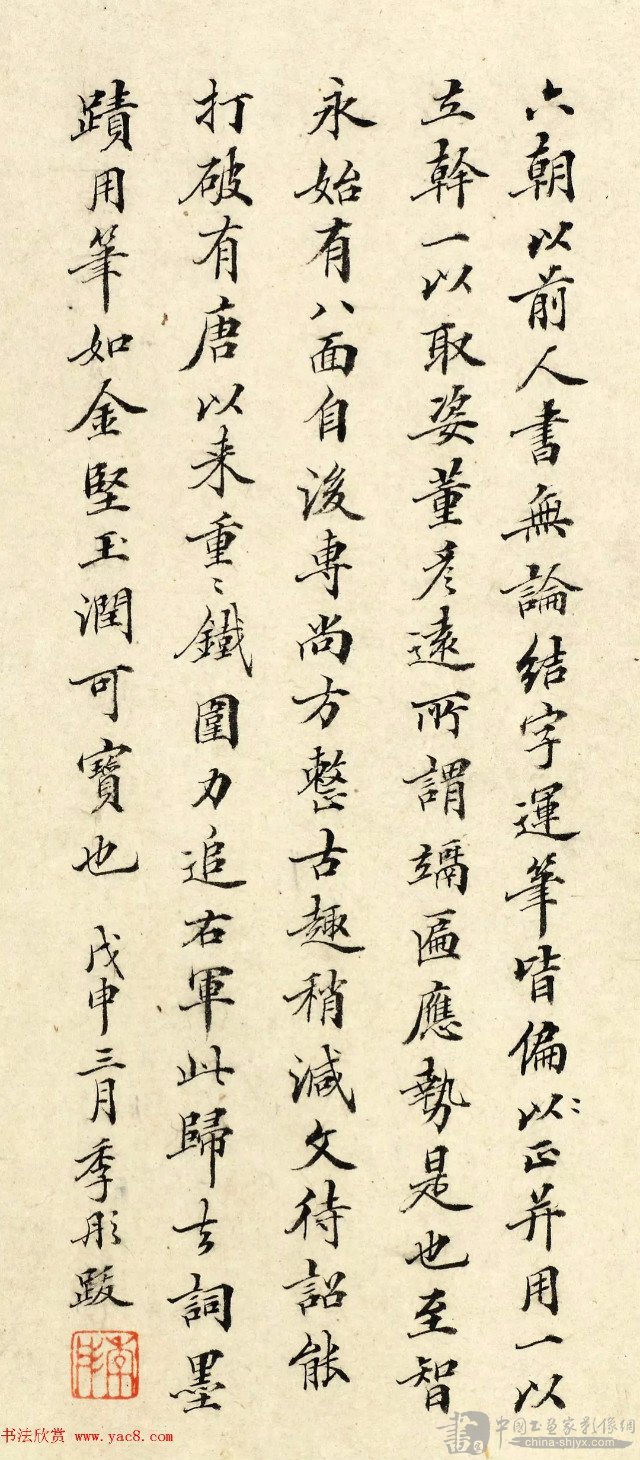 六朝以前人書無論結字運筆皆偏以正并用一以
立幹一以取姿董彥遠所謂隔匾應勢是也至智
永始有八面自後專尚方整古趣稍減文待詔能
打破有唐以来重〻鐵圍力追右軍此歸去詞墨
蹟用筆如金堅玉潤可寶也 戊申三月季彤跋
书法欣赏 www.yac8.com
書画
中國书画家影像網
china-shjyx.com